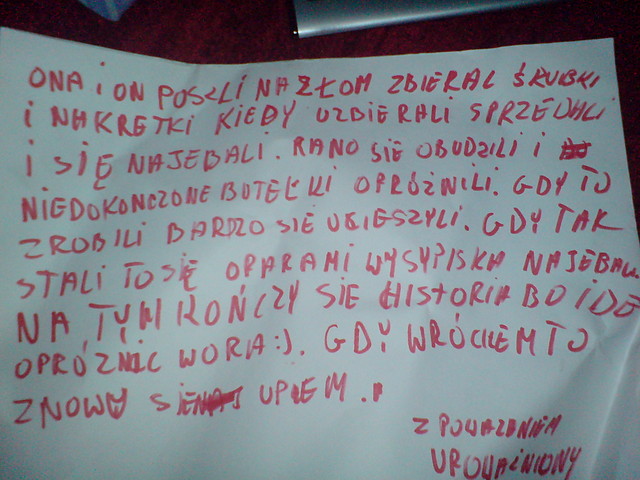 ONA i ON POSZLI NA ZŁOM ZBIERAĆ ŚRUBKI
i NAKRETKI KIEDY UZBIERALI SPRZEDALI
I SIĘ NAJEBALI. RANO SIE OBUDZILI i
NIEDOKONCZONE BUTEŁKI OPRÓŻNILI. GDY TO
ZROBILI BARDZO SIE UCIESZYLI. GDY TAK
STALI TO SIĘ OPARAMI WYSYPISKA NAJEBALI
NA TYM KOŃCZY SIE HISTORIA BO IDE
OPRÓŻNIC WORA:). GDY WRÓCIŁEM TO
ZNOWU SIE UPIŁEM.
Z POWAZANIEM
UPOWAŻNIONY